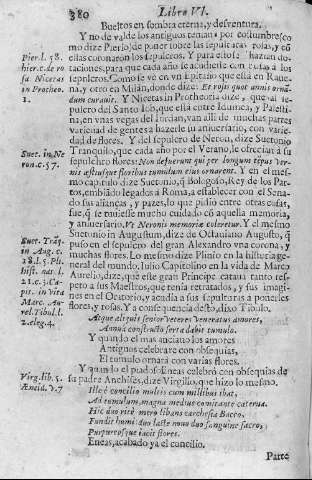 380
Libro VI.
Bueltos en sombra eterna, y desventura.
Y no de valde los antiguos tenian por costumbre (co
mo dize Pierio) de poner sobre las sepulturas rosas, y cō
ellas coronaron los sepulcros. Y para esto se hazian do
taciones, para que cada año se acudiesse con rosas a los
sepulcros. Como se vè en vn epitafio que està en Raue-
na, y otro en Milàn, donde dize: Et rosas quot annis orna-
dum curauit. Y Nicetas in Prothoria dize, que al se-
pulcro del Santo Iob, que està entre Idumea, y Palesti-
na, en vnas vegas del Iordan, van alli de muchas partes
variedad de gentes a hazerle su aniuersario, con varie-
dad de flores. Y del sepulcro de Neron, dize Suetonio
Tranquilo, que cada año por el Verano, le ofrecian a su
sepulchro flores: Non defuerunt qui per longum tēpus ver-
nis æstiuisque floribus tumulum eius ornarent. Y en el mes-
mo capitulo dize Suetonio, q̄ Bologoso, Rey de los Par-
tos, embiādo legados a Roma, a establecer con el Sena-
do sus alianças, y pazes, lo que pidio entre otras cosas,
fue, q̄ se tuuiesse mucho cuidado cō aquella memoria,
y aniuersario, Vt Neronis memoriæ coleretur. Y el mesmo
Suetonio in Augustum, dize de Octauiano Augusto, q̄
puso en el sepulcro del gran Alexandro vna corona, y
muchas flores. Lo mesmo dize Plinio en la historia ge-
neral del mundo. Iulio Capitolino en la vida de Marco
Aurelio, dize, que este gran Principe cataui tanto respe-
to a sus Maestros, que tenia retratados, y sus imagi-
nes en el Oratorio, y acudia a sus sepulturas a ponerles
flores, y rosas. Y a consequencia desto, dixo Tibulo.
Atque aliquis senior veteres veneratus amores,
Annua constructo serta dabit tumulo.
Y quando el mas anciato los amores
Antiguos celebrare con obsequias,
El tumulo ornarà con varias flores.
Y quando el piadoso Eneas celebrò con obsequias de
su padre Anchises, dize Virgilio, que hizo lo mesmo.
Ille è concilio multis cum millibus ibat,
Ad tumulum, magna medius comitante caterua.
Hic duo rite mero libans carchesia Baccho,
Fundit humi: duo lacte nouo duo sanguine sacro;
Purpureosque iacit flores.
Eneas, acabado ya el concilio.
Parte
Pier. l. 58.
hier. c. de ro
sa Nicetas
in Protheo.
1.
Suet. in Ne
ron. c. 57.
Suet. Trāq̄
in Aug. c.
18. l. 5. Pli.
hist. nat. l.
21. c. 3. Ca-
pit. in vita
Marc. Au-
rel. Tibul. l.
2. eleg. 4.
Virg. lib. 5.
Æneid. v. 7